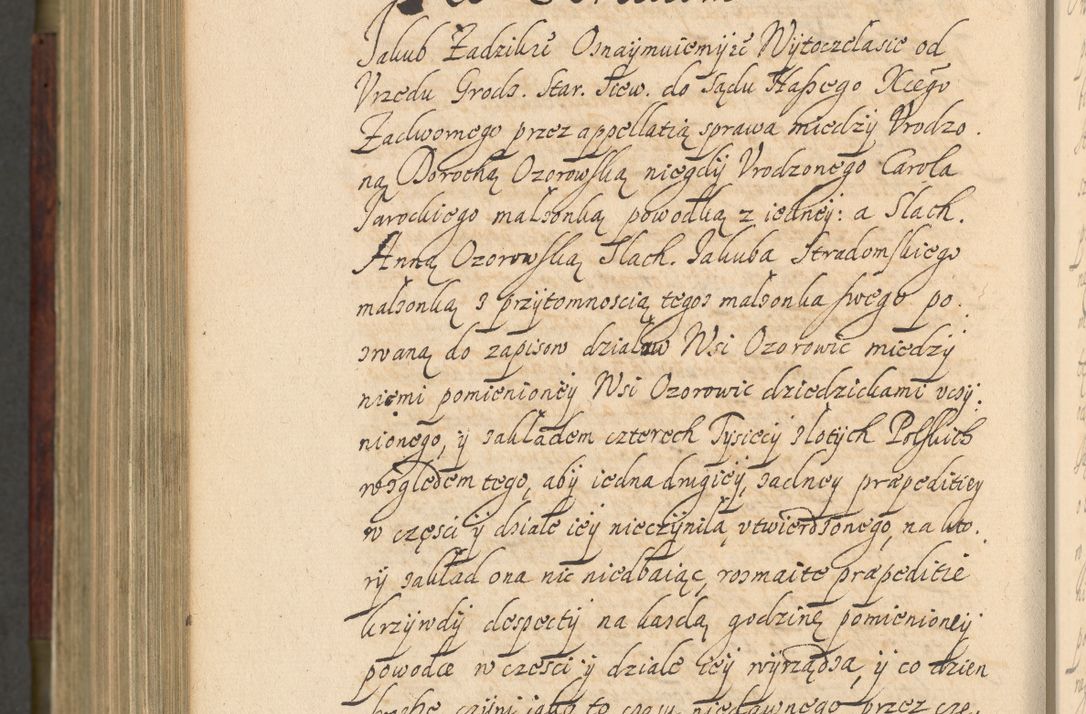 Jakub Zadzikże Osnaymuiemyże Wytoczelasie od
Vrzedu Grodz. Star. Siew. do Sądu Naßego Xcego
Zadwornego przez appellatią sprawa miedzy Vrodzo.
ną Dorothą Ozorowską niegdy Vrodzonego Carola
Jarockiego malzonką powodką z iedney: a Slach.
Anną Ozorowską Slach. Jakuba Stradomskiego
malzonką z przytomnoscią tegoz malzonka swego po.
zwaną do zapisow dzialow Wsi Ozorowic miedzy
niemi pomienioney Wsi Ozorowic dziedzickami vczy:
nionego, y zakladem czterech Tysięcy zlotych Polskich
względem tego, aby iedna drugiey, zadney præpeditiey
w częsci y dziale iey nieczynila, vtwierdzonego, na kto.
ry zaklad ona nic niedbaiąc, rozmaite præpeditie
krzywdy despecty na kazdą godzinę pomienioney
powodce w czesci y dziale iey wyrządza, y co dzien
czyni iako to czasu niedawnego przez cze.